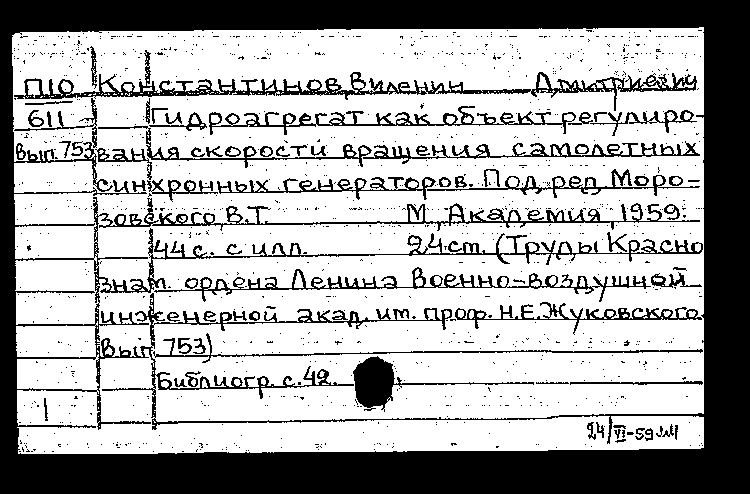 П10 Константинов, Виленин Дмитриевич
611 Гидроагрегат как объект регулиро-
Вып. 753 вания скорости вращения самолетных
синхронных генераторов. Под ред. Моро-
зовского В.Т. М., Академия, 1959.
44 с. с илл. 24 см. (Труды Красно
знам. ордена Ленина Военно-воздушной
инженерной акад. им. проф. Н.Е.Жуковского.
Вып. 753)
Библиогр. с. 42.
1
24/VI-59